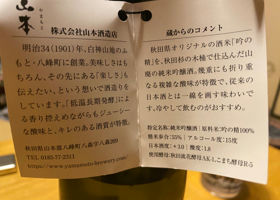 山本
やまもと
株式会社山本酒造店
明治34(1901)年、白神山地のふ
もと・八峰町に創業。美味しさはも
ちろん、その先にある「楽しさ」も
伝えたい、という想いで酒造りを
しています。「低温長期発酵」によ
る香り控えめながらもジューシー
な酸味と、キレのある酒質が特徴。
秋田県山本郡八峰町八森字八森269
TEL 0185-77-2311
https://www.yamamoto-brewery.com/
蔵からのコメント
秋田県オリジナルの酒米「吟の
精」を、秋田杉の木桶で仕込んだ山
廃の純米吟醸酒。幾重にも折り重
なる複雑な酸味が特徴で、従来の
日本酒とは一線を画す味わいで
す。冷やして飲むのがおすすめ。
特定名称/純米吟醸酒|原料米/吟の精100%
精米歩合/55%|アルコール度/15度
日本酒度/+3.0|酸度/1.8
使用酵母/秋田流花酵母AK-1、こまち酵母R-5